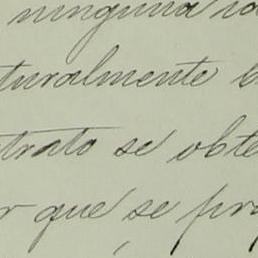 ninguna
turalmente
trato se obte
que se pro